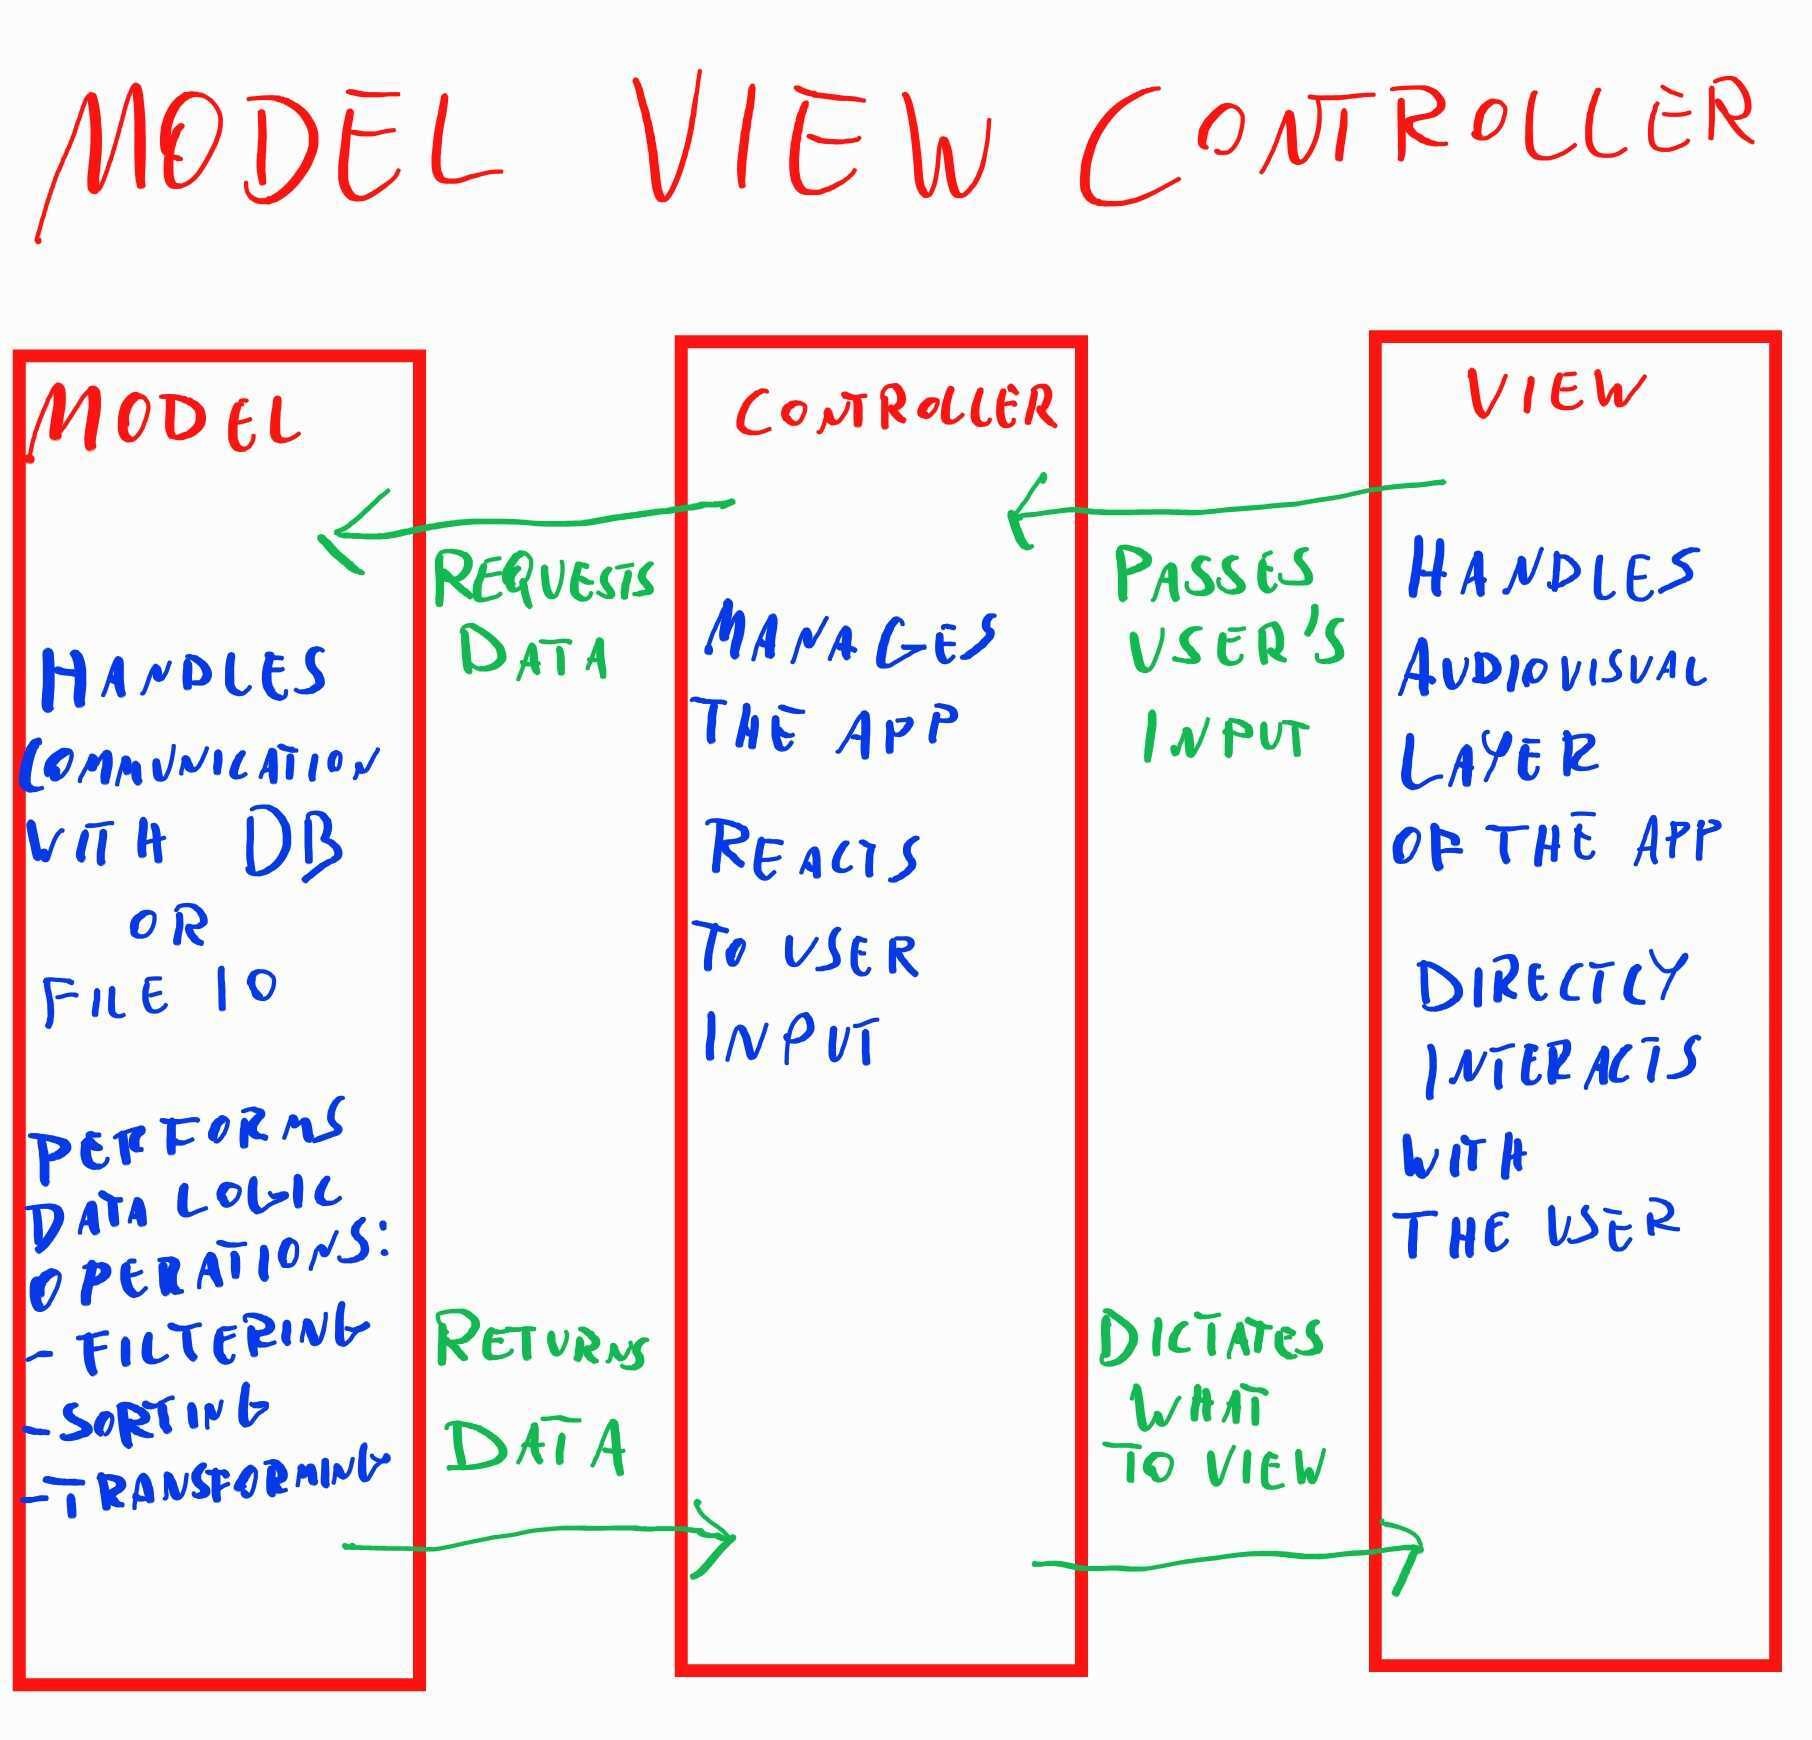 MODEL VIEW CONTROLLER
MODEL
HANDLES
COMMUNICATION
WITH DB
OR
FILE IO
PERFORMS
DATA LOGIC
OPERATIONS:
- FILTERING
- SORTING
- TRANSFORMING
REQUESTS
DATA
RETURNS
DATA
CONTROLLER
MANAGES
THE APP
REACTS
TO USER
INPUT
PASSES
USER'S
INPUT
DICTATES
WHAT
TO VIEW
VIEW
HANDLES
AUDIOVISUAL
LAYER
OF THE APP
DIRECTLY
INTERACTS
WITH
THE USER